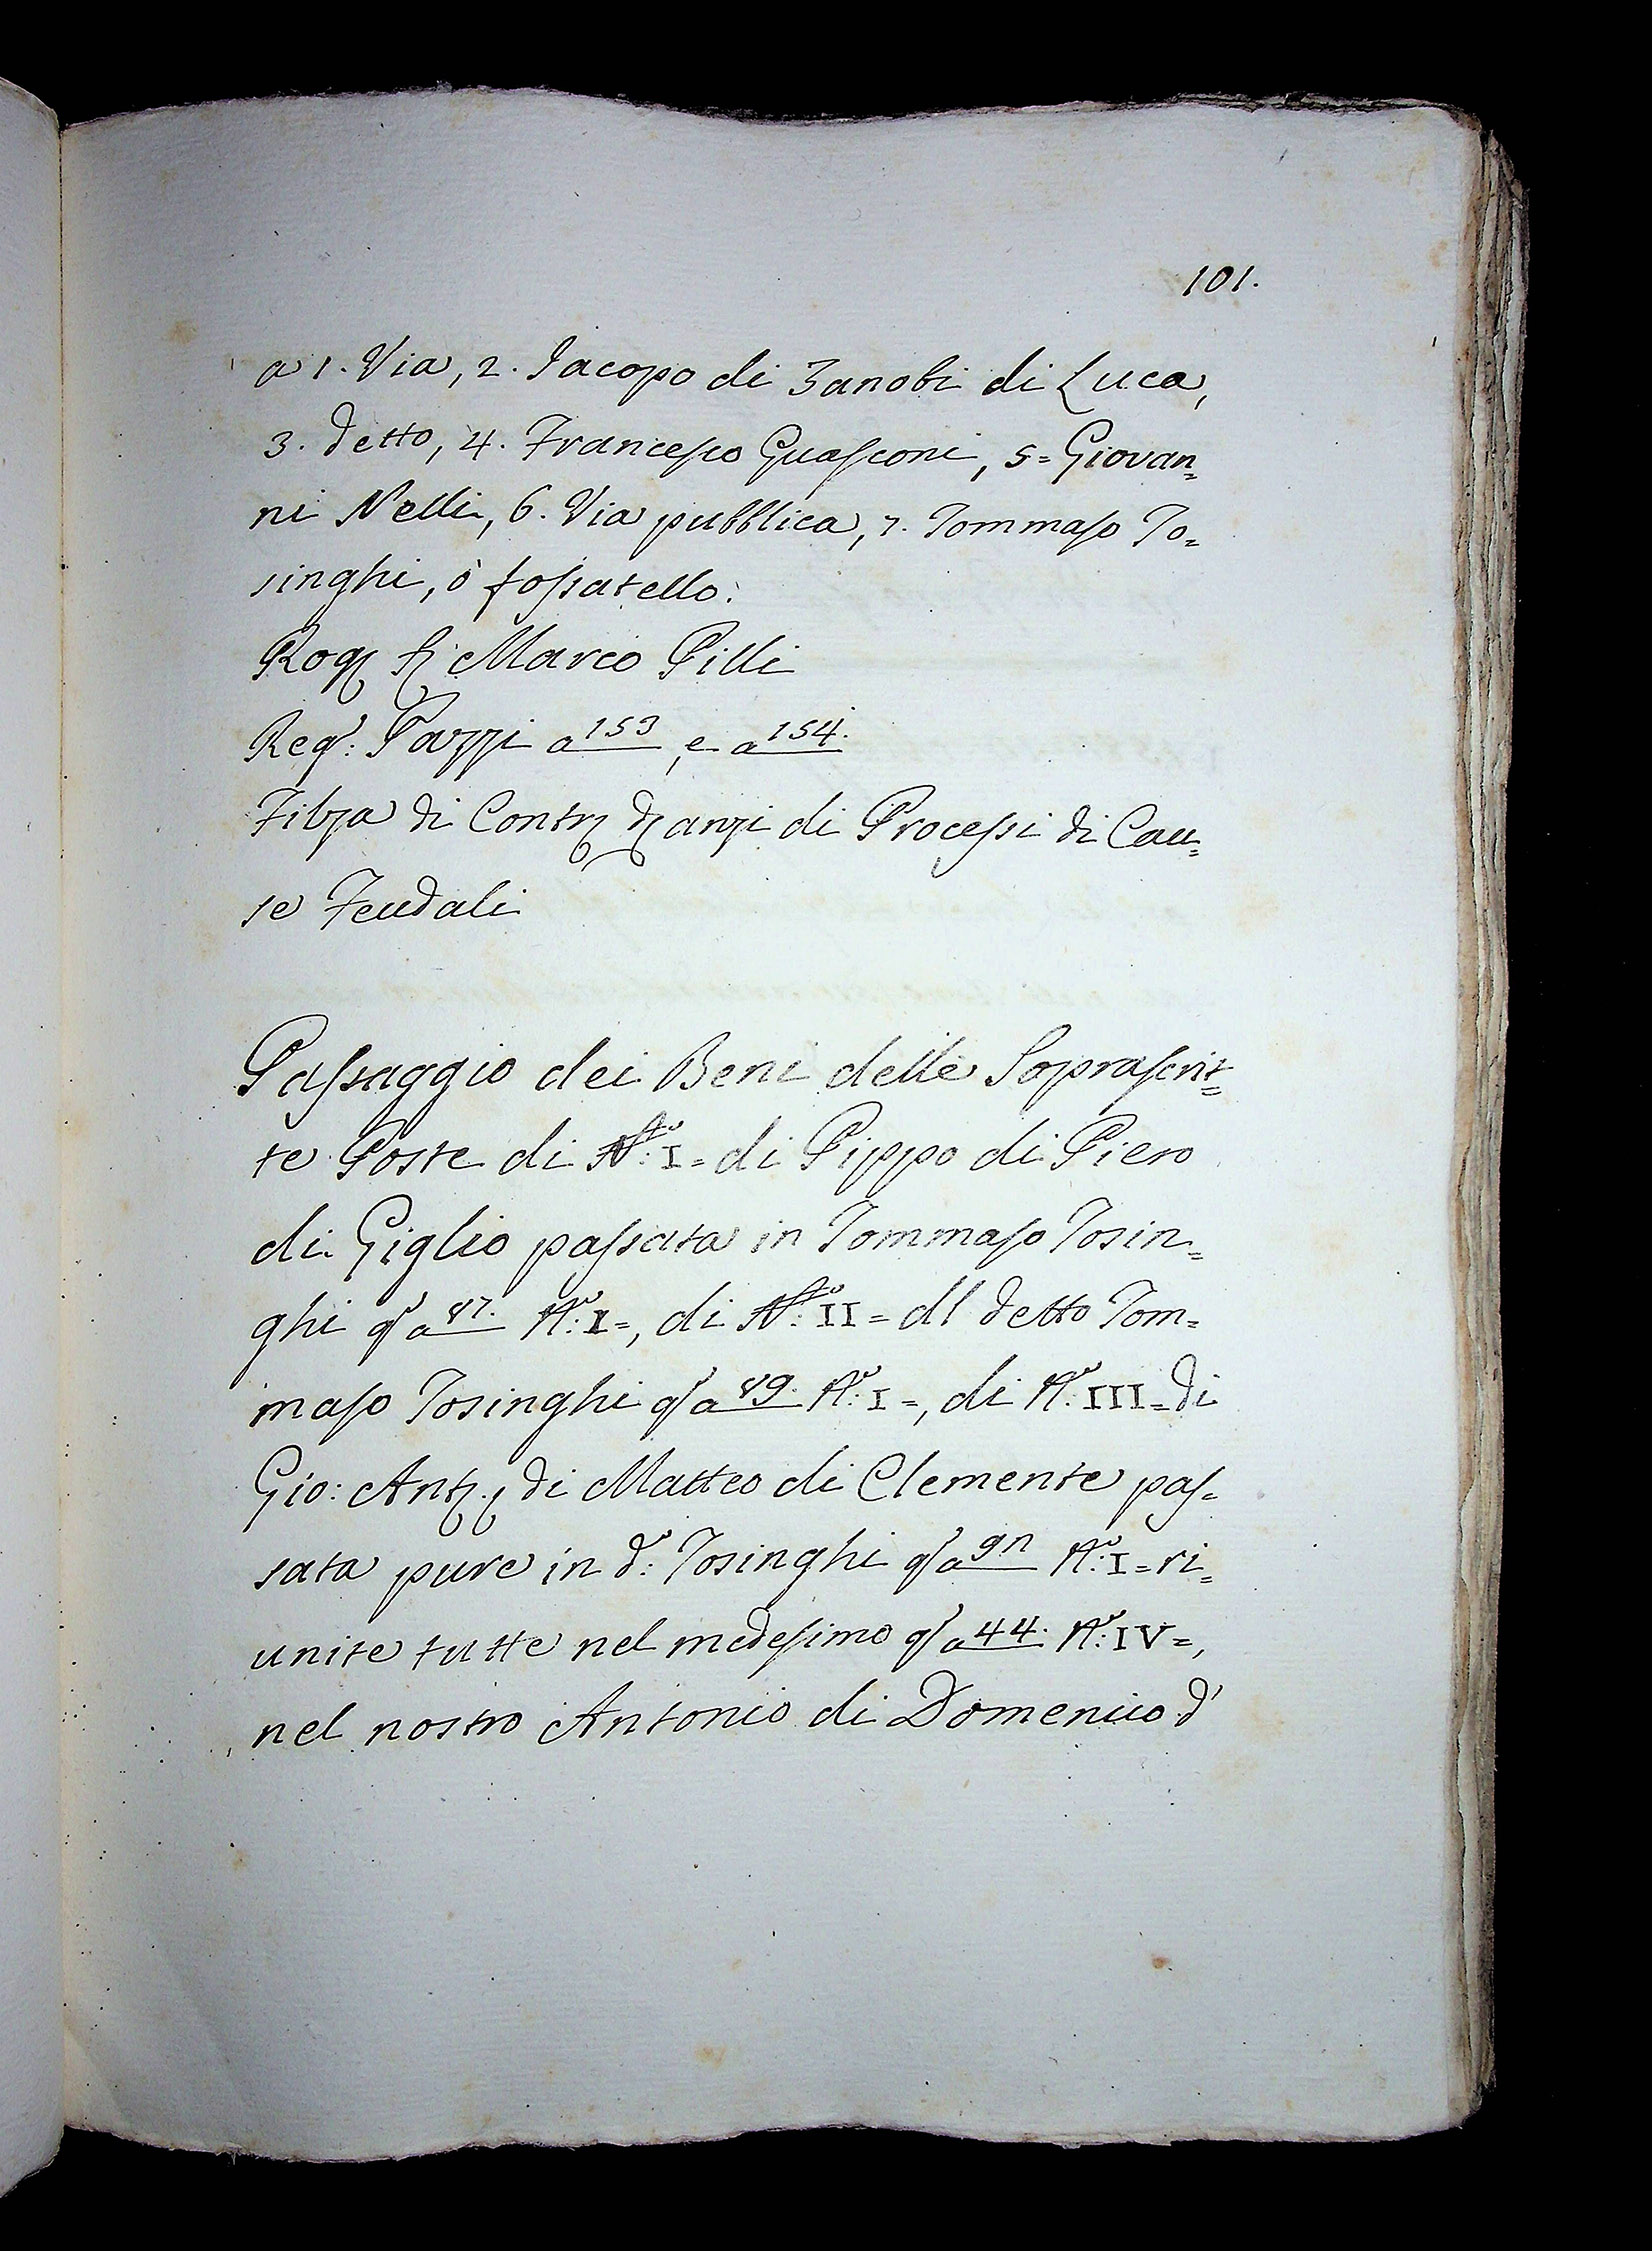 101.
a 1. Via, 2. Iacopo di Zanobi di Luca,
3. detto, 4. Francesco Guasconi, 5= Giovan=
ni Nelli, 6. Via pubblica, 7. Tommaso To=
singhi, ò fossatello.
Rog Marco Pilli
Reg: Pazzi a 153, e a 154.
Filza di Contr anzi di Processi di Cau=
se Feudali
Passaggio dei Beni delle Soprascrit=
te Poste di N: I= di Pippo di Piero
di Giglio passata in Tommaso Tosin=
ghi a 87. N: I=, di N: II= dl detto Tom=
maso Tosinghi a 89. N: I=, di N: III= di
Gio: Ant di Matteo di Clemente pas=
sata pure in d: Tosinghi a N: I= ri=
unite tutte nel medesimo a 44. N: IV=,
nel nostro Antonio di Domenico d'